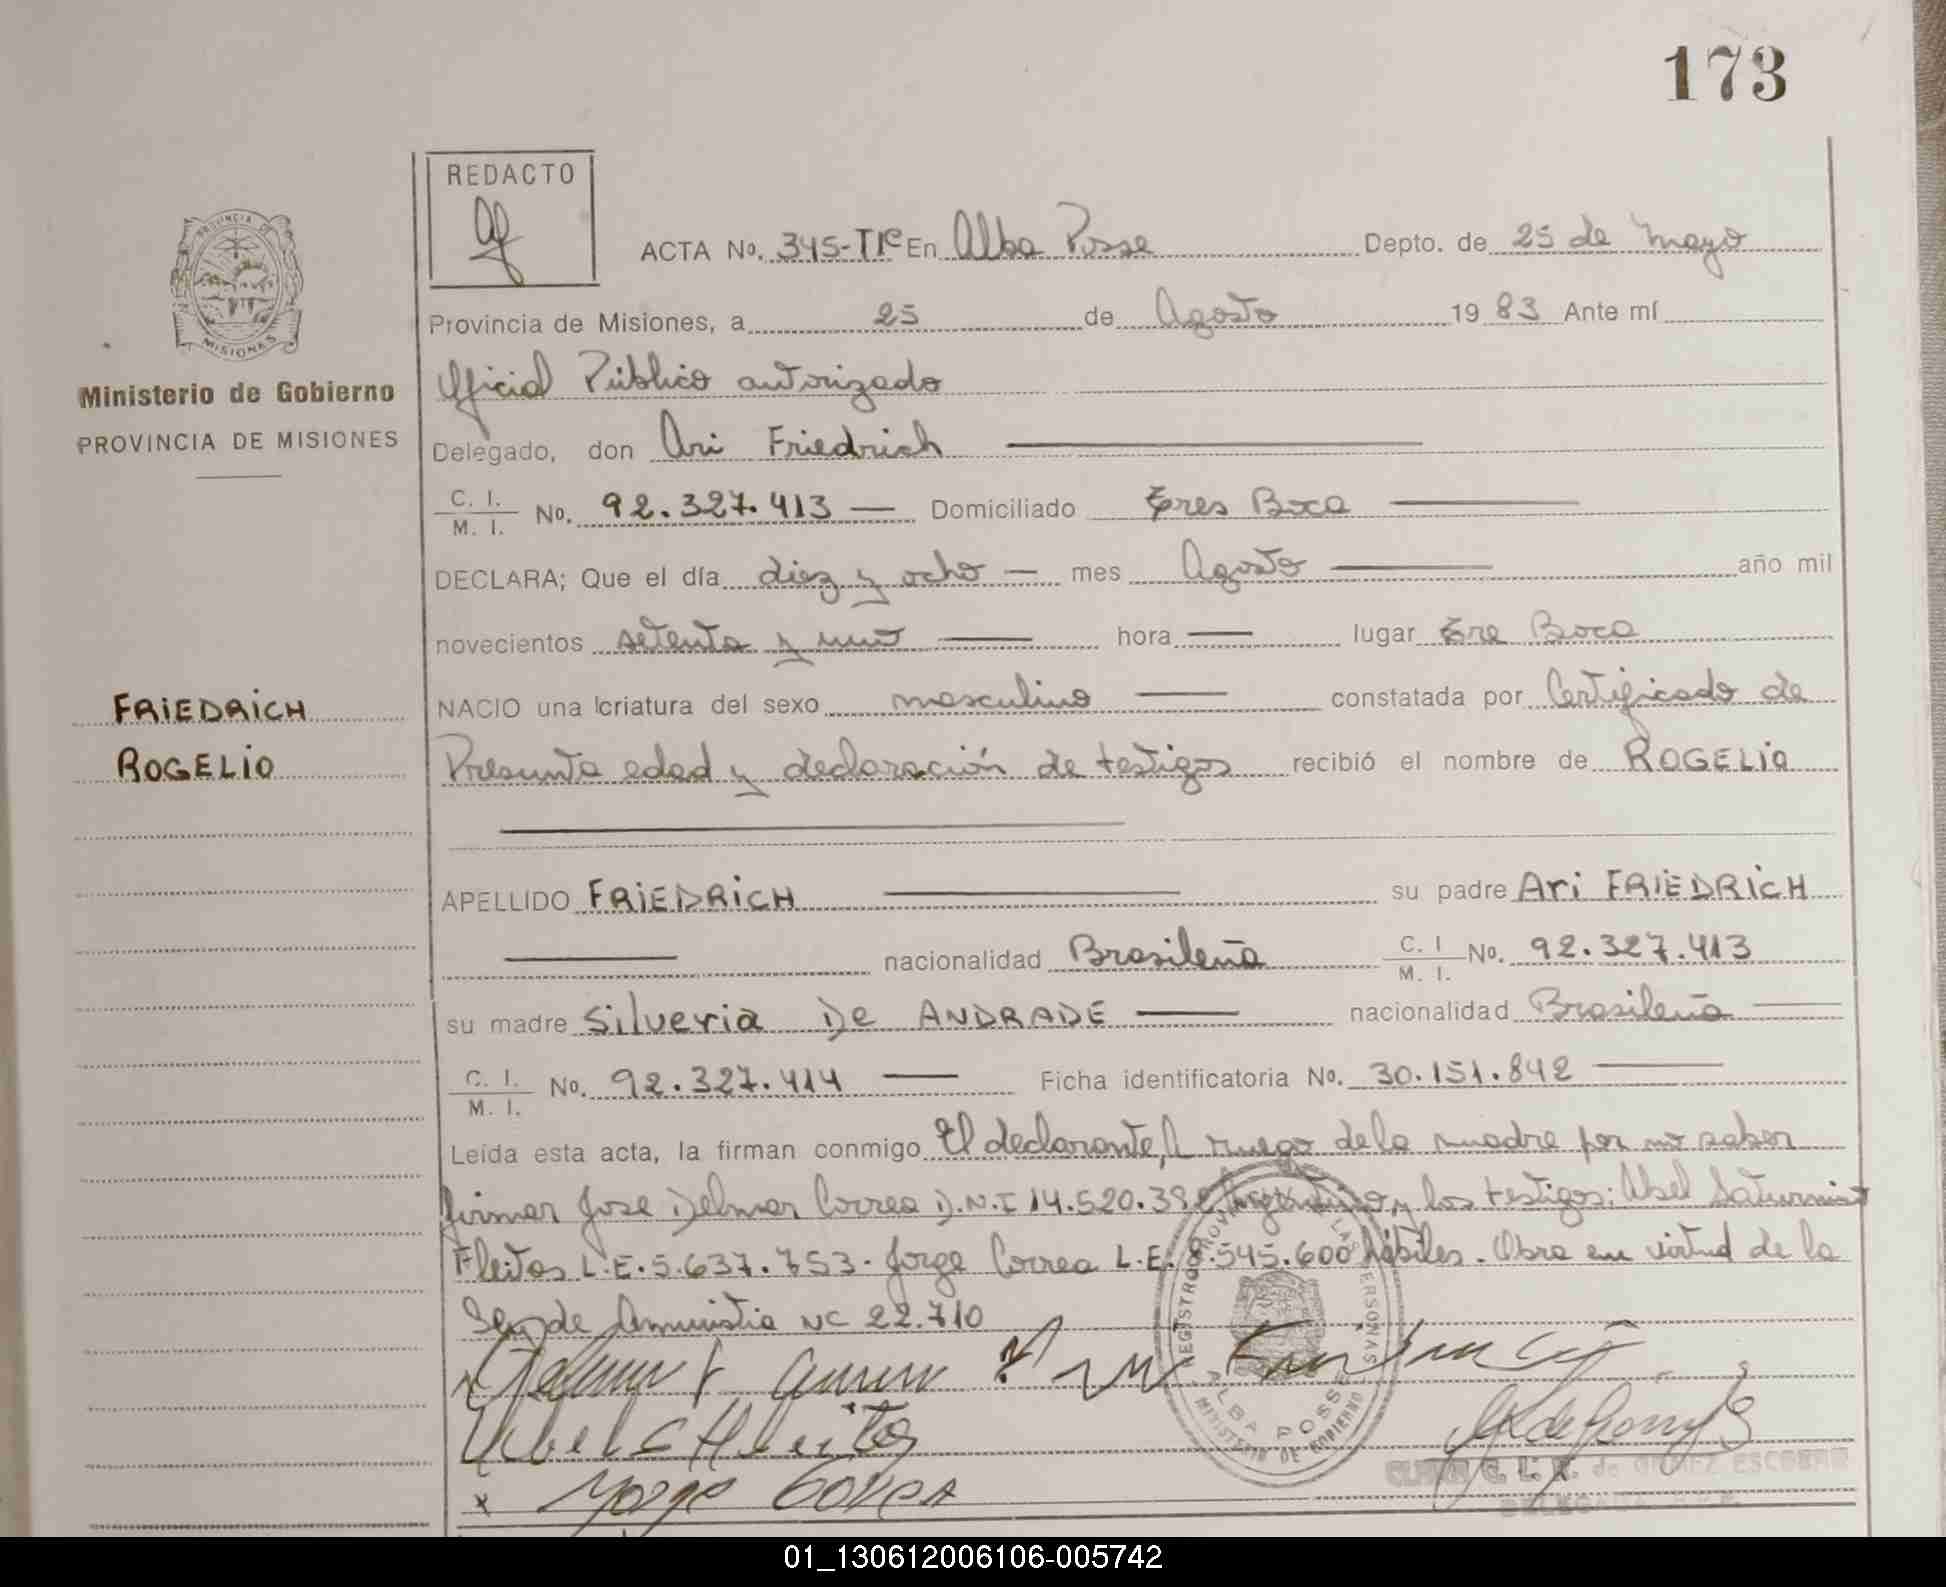 173
REDACTO
PROVINCIA DE
MISIONES
Ministerio de Gobierno
PROVINCIA DE MISIONES
FRIEDRICH
ROGELIO
ACTA No. 345-TIº En Alba Posse Depto. de 25 de Mayo
Provincia de Misiones, a 25 de Agosto 1983 Ante mí
Oficial Público autorizado
Delegado, don Ari Friedrich
C. I. / M. I. No. 92.327.413 — Domiciliado Tres Boca
DECLARA; Que el día diez y ocho — mes Agosto — año mil
novecientos setenta y uno — hora — lugar Tre Boca
NACIO una criatura del sexo masculino — constatada por Certificado de
Presunta edad y declaración de testigos recibió el nombre de ROGELIO
APELLIDO FRIEDRICH — su padre Ari FRIEDRICH
— nacionalidad Brasileña C. I / M. I. No. 92.327.413
su madre Silveria De ANDRADE — nacionalidad Brasileña —
C. I. / M. I. No. 92.327.414 — Ficha identificatoria No. 30.151.842 —
Leída esta acta, la firman conmigo El declarante, A ruego de la madre por no saber
firmar Jose Delmar Correa D.N.I 14.520.39 Argentino y los testigos: Abel Saturnino
Fleitas L.E. 5.637.753. Jorge Correa L.E. 8.545.600 hábiles. Obra en virtud de la
Ley de Amnistia Nº 22.710
REGISTRO PROVINCIAL DE LAS PERSONAS
ALBA POSSE
MINISTERIO DE GOBIERNO
Abel S Fleitas
x Jorge Correa
de GOMEZ ESCOBAR
DELEGADA
01_130612006106-005742